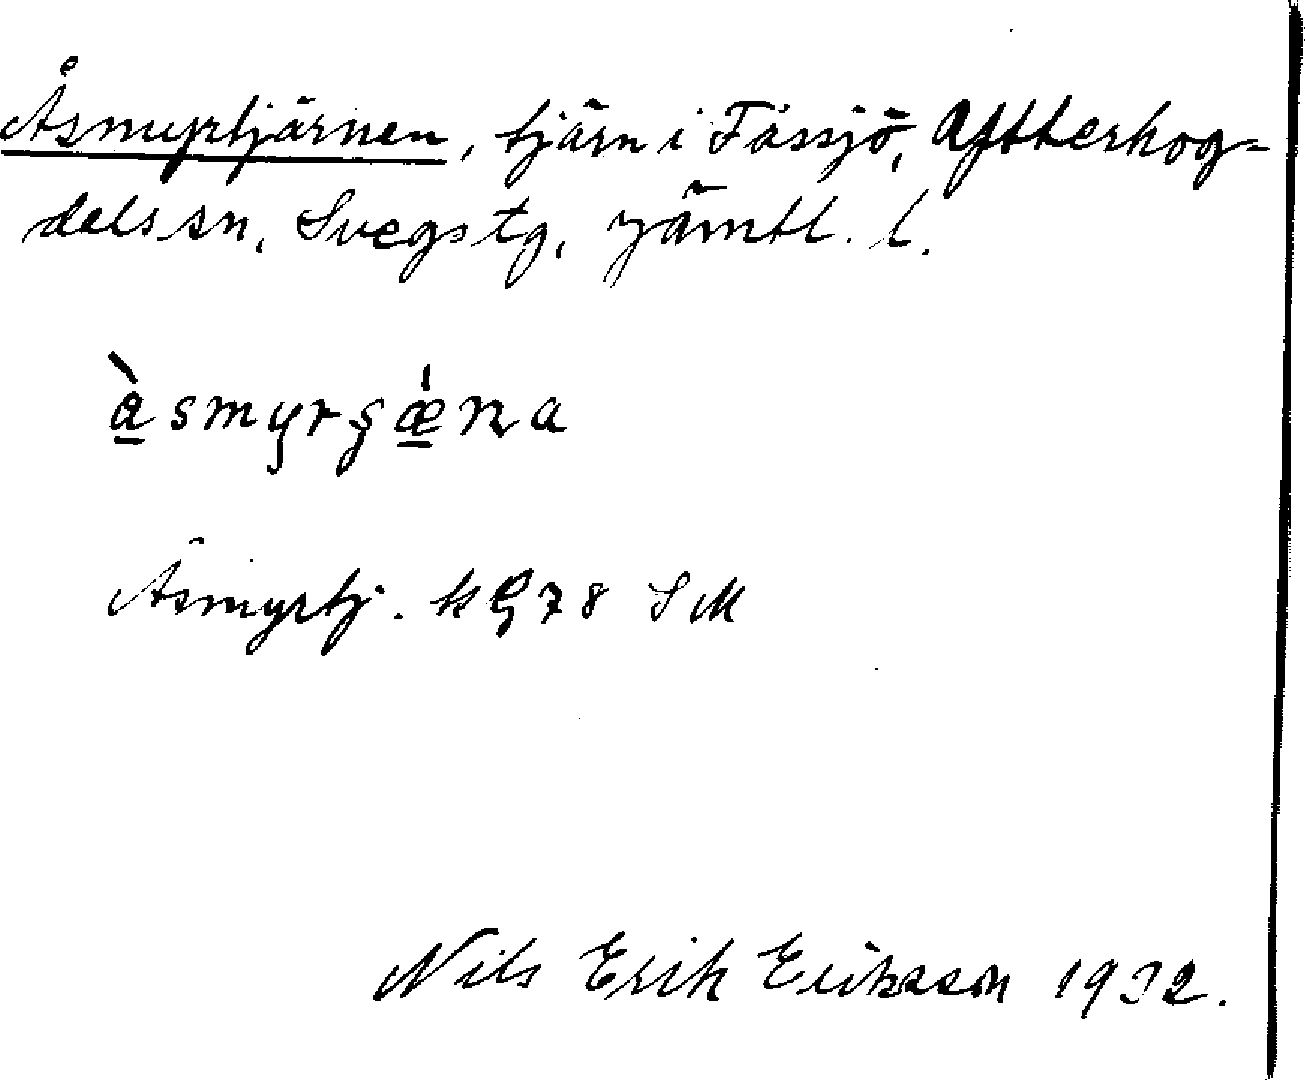 Åsmyrtjärnen, tjärn i Fåssjö, Ytterhog-
dals sn, Svegs tg, Jämtl. l.
àsmyrşæ̀na
Åsmyrtj. k G 78 SM
Nils Erik Eriksson 1932.